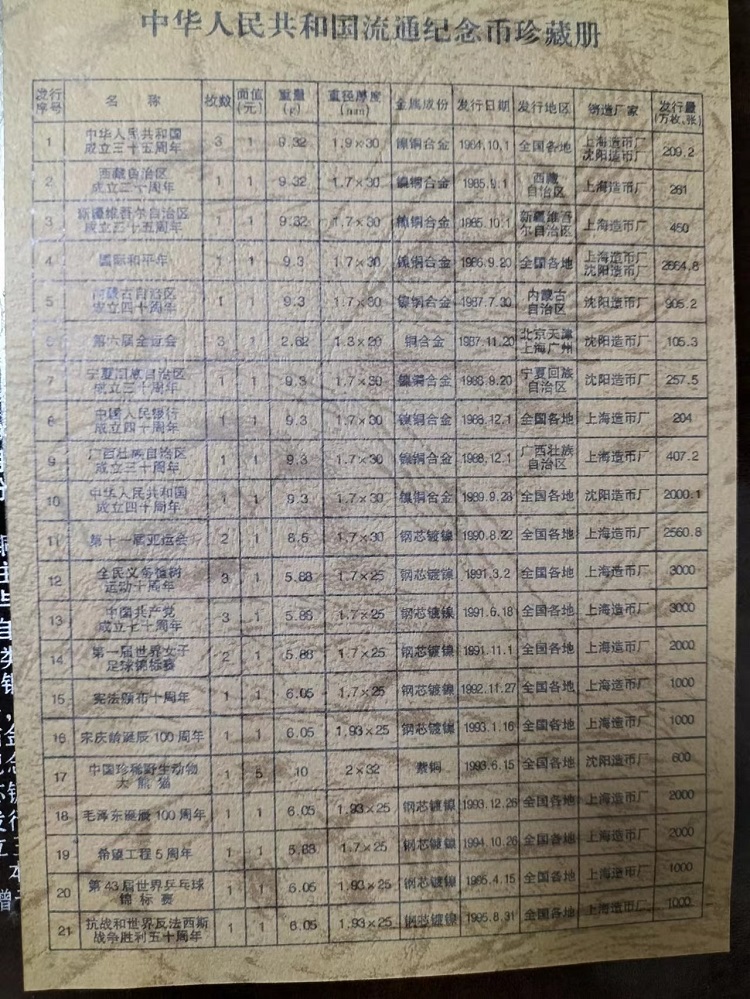 中华人民共和国流通纪念币珍藏册
发行序号 名称 枚数 面值(元) 重量(g) 直径厚度(mm) 金属成份 发行日期 发行地区 铸造厂家 发行量(万枚,张)
1 中华人民共和国成立三十五周年 3 1 9.32 1.9×30 镍铜合金 1984.10.1 全国各地 上海造币厂 沈阳造币厂 209.2
2 西藏自治区成立二十周年 1 1 9.32 1.7×30 镍铜合金 1985.9.1 西藏自治区 上海造币厂 261
3 新疆维吾尔自治区成立三十五周年 1 1 9.32 1.7×30 镍铜合金 1985.10.1 新疆维吾尔自治区 上海造币厂 450
4 国际和平年 1 1 9.3 1.7×30 镍铜合金 1986.9.20 全国各地 上海造币厂 沈阳造币厂 2664.8
5 内蒙古自治区成立四十周年 1 1 9.3 1.7×30 镍铜合金 1987.7.30 内蒙古自治区 沈阳造币厂 905.2
6 第六届全运会 3 1 2.62 1.3×20 铜合金 1987.11.20 北京天津上海广州 沈阳造币厂 105.3
7 宁夏回族自治区成立三十周年 1 1 9.3 1.7×30 镍铜合金 1988.9.20 宁夏回族自治区 沈阳造币厂 257.5
8 中国人民银行成立四十周年 1 1 9.3 1.7×30 镍铜合金 1988.12.1 全国各地 上海造币厂 204
9 广西壮族自治区成立三十周年 1 1 9.3 1.7×30 镍铜合金 1988.12.1 广西壮族自治区 上海造币厂 407.2
10 中华人民共和国成立四十周年 1 1 9.3 1.7×30 镍铜合金 1989.9.28 全国各地 沈阳造币厂 2000.1
11 第十一届亚运会 2 1 6.5 1.7×30 钢芯镀镍 1990.8.22 全国各地 上海造币厂 2560.8
12 全民义务植树运动十周年 3 1 5.88 1.7×25 钢芯镀镍 1991.3.2 全国各地 上海造币厂 3000
13 中国共产党成立七十周年 3 1 5.88 1.7×25 钢芯镀镍 1991.6.18 全国各地 上海造币厂 3000
14 第一届世界女子足球锦标赛 2 1 5.88 1.7×25 钢芯镀镍 1991.11.1 全国各地 上海造币厂 2000
15 宪法颁布十周年 1 1 6.05 1.7×25 钢芯镀镍 1992.11.27 全国各地 上海造币厂 1000
16 宋庆龄诞辰100周年 1 1 6.05 1.93×25 钢芯镀镍 1993.1.16 全国各地 上海造币厂 1000
17 中国珍稀野生动物大熊猫 1 5 10 2×32 紫铜 1993.6.15 全国各地 沈阳造币厂 600
18 毛泽东诞辰100周年 1 1 6.05 1.93×25 钢芯镀镍 1993.12.26 全国各地 上海造币厂 2000
19 希望工程5周年 1 1 5.88 1.7×25 钢芯镀镍 1994.10.26 全国各地 上海造币厂 2000
20 第43届世界乒乓球锦标赛 1 1 6.05 1.93×25 钢芯镀镍 1995.4.15 全国各地 上海造币厂 1000
21 抗战和世界反法西斯战争胜利五十周年 1 1 6.05 1.93×25 钢芯镀镍 1995.8.31 全国各地 上海造币厂 1000